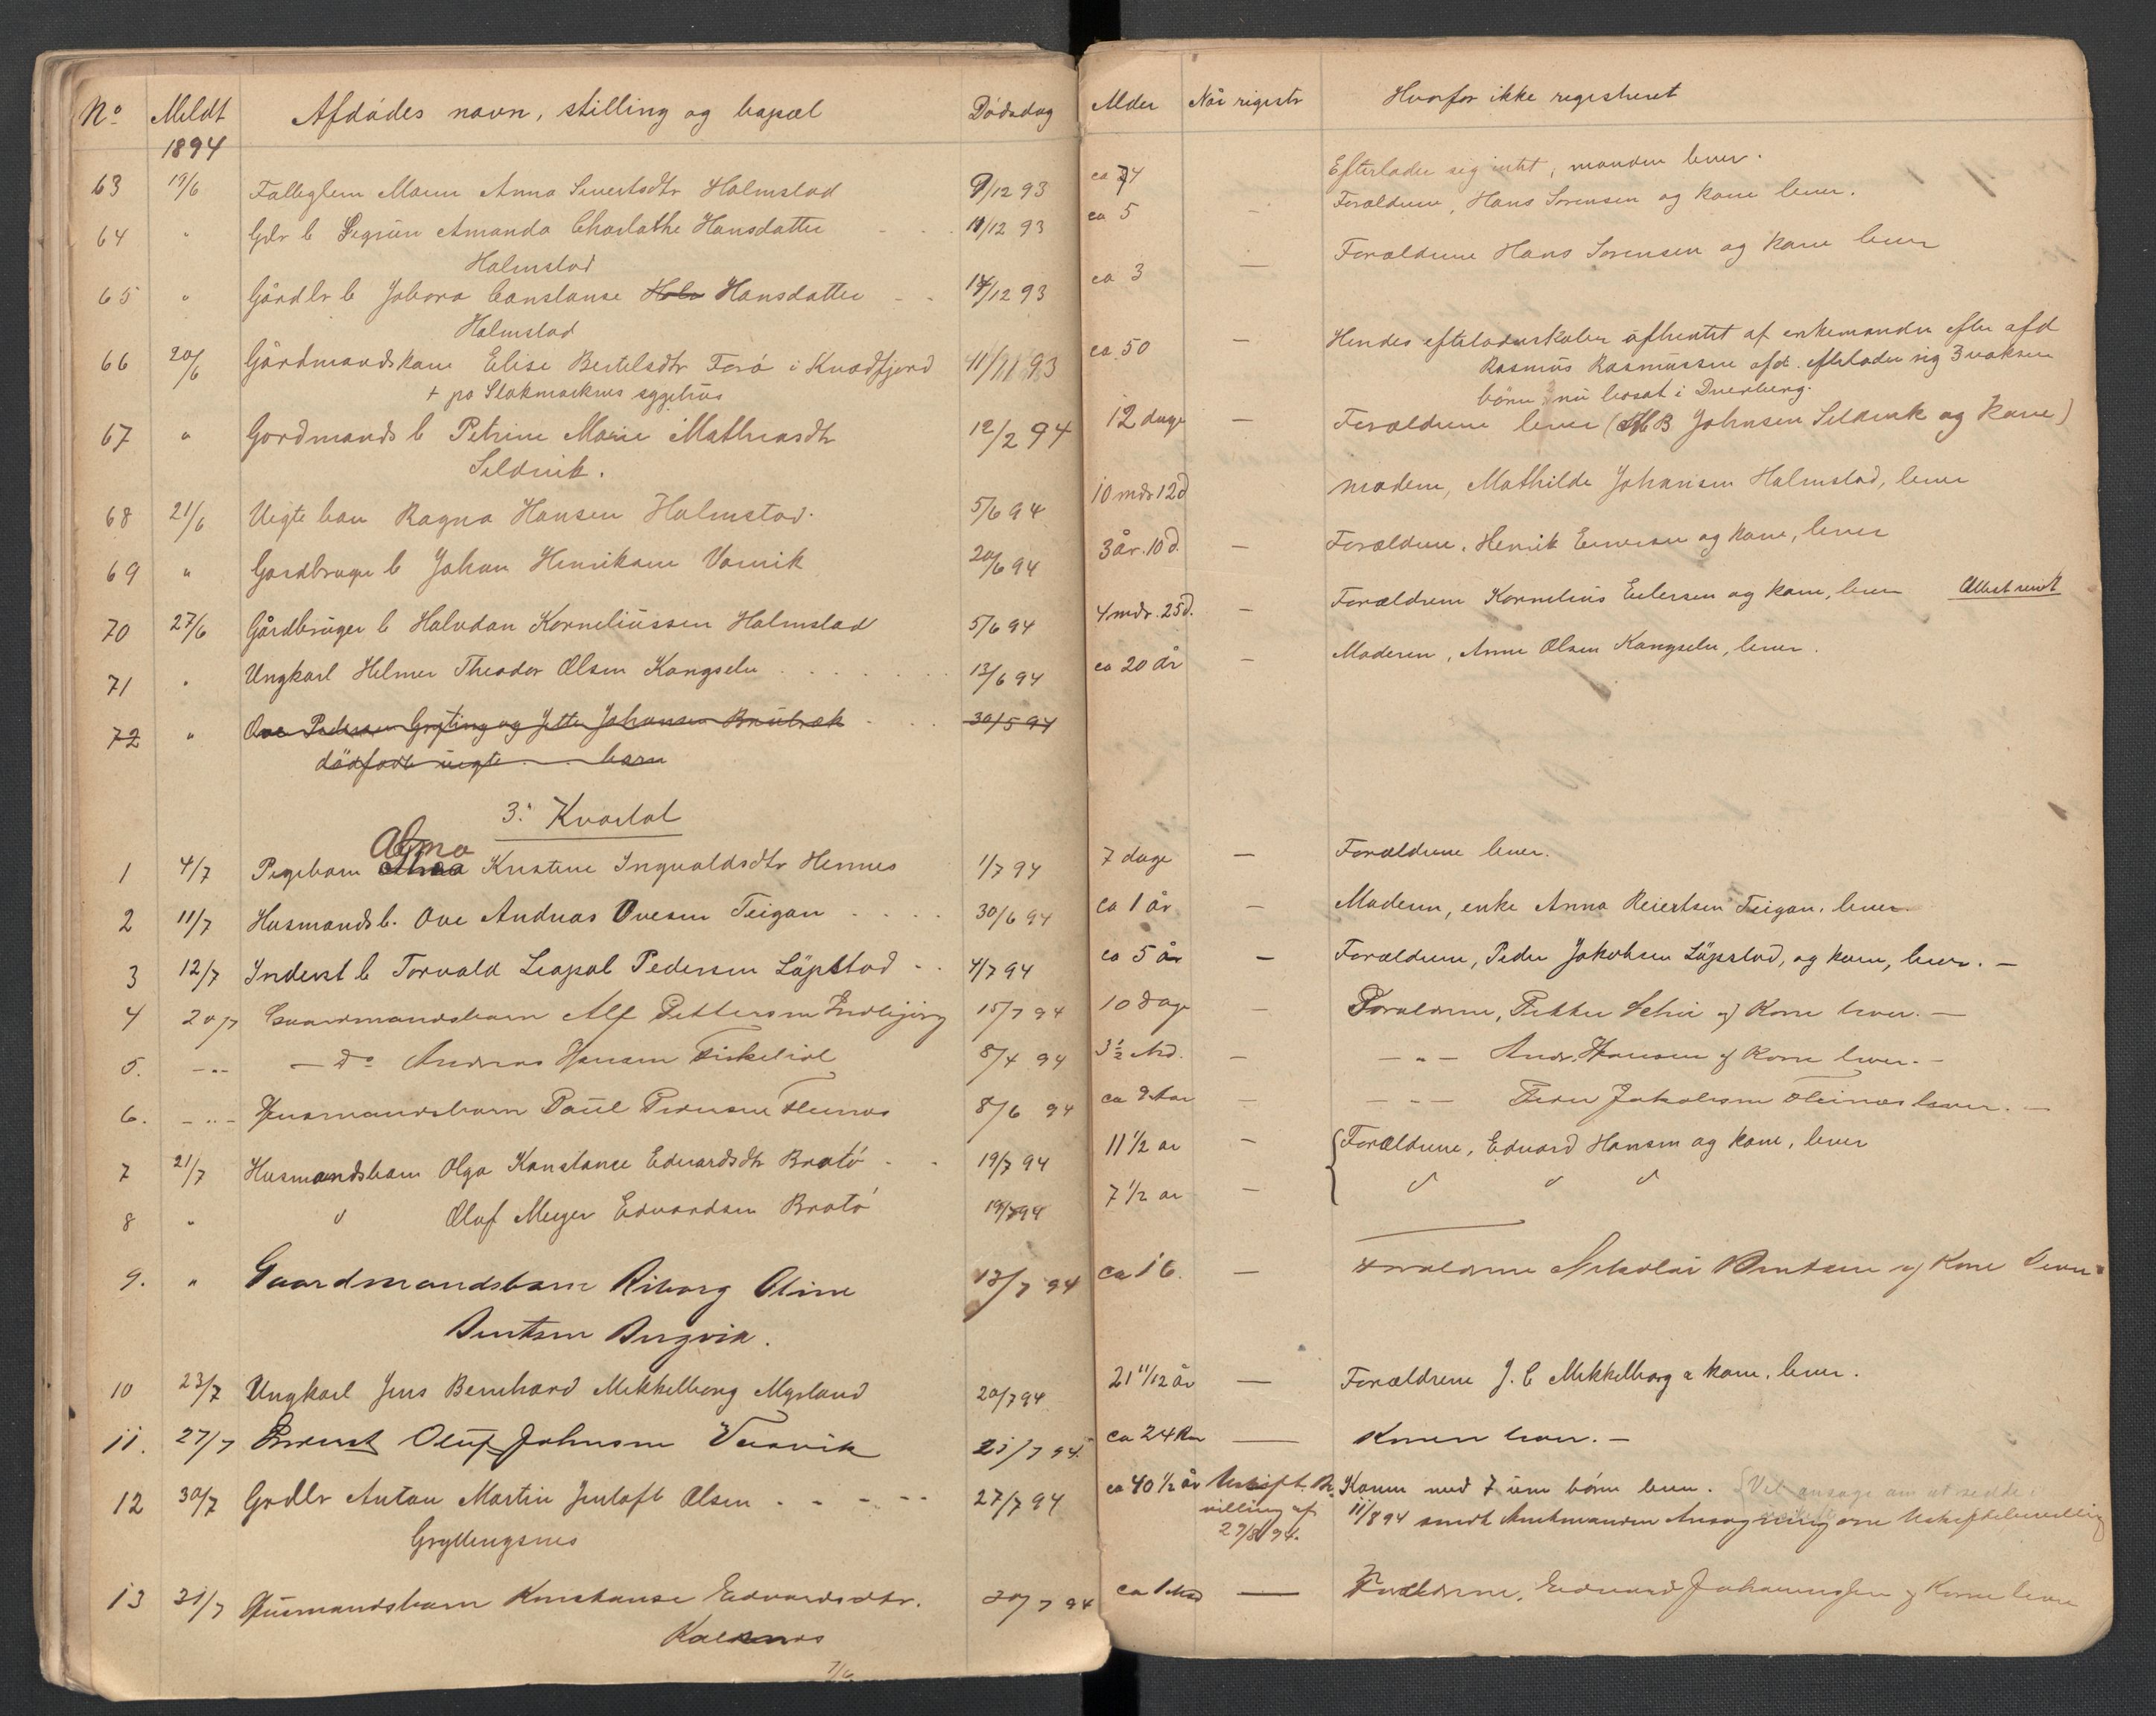 No Meldt Afdödes navn, stilling og bopæl Dödsdag Alder Når registr Hvorfor ikke registreret
1894
63 19/6 Marie Anna Sivertsdtr Halmstad 9/12 93 ca 74 Efterlader sig intet, manden lever.
64 " Gdbr b Signe Amanda Charlothe Hansdatter 11/12 93 ca 5 – Forældrene, Hans Sörensen og kone lever.
Halmstad
65 " Gårdbr b Constanse Hansdatter 14/12 93 ca 3 — Forældrene Hans Sörensen og kone lever
Halmstad
66 20/6 Gårdmandskone Elise Bertelsdtr Forö i Kvædfjord 11/11 93 ca 50 – Hendes efterladenskaber afhentet af enkemanden efter afd
+ på Stokmarknes sygehus Rasmus Rasmussen afd. efterlader sig 3 voksne
börn nu bosat i Dverberg.
67 " Gårdmands b Petrine Marie Mathiasdtr 12/2 94 12 dage – Forældrene lever (M B Johnsen Sildvik og kone)
Sildvik.
68 21/6 Uegte barn Ragna Hansen Halmstad. 5/6 94 10 mdr 12 d moderen, Mathilde Johansen Halmstad, lever
69 " Gårdbruger b Johan Henriksen Vornvik 20/6 94 3 år. 10 d. – Forældrene, Henrik og kone, lever
70 27/6 Gårdbruger b Halvdan Korneliussen Halmstad 5/6 94 4 mdr. 25 d. – Forældrene Kornelius Eilersen og kone, lever Attest sendt
71 " Ungkarl Helmer Theodor Olsen Kongselv 13/6 94 ca 20 år – Moderen, Anne Olsen Kongselv, lever.
72 " Ove Pedersen Gryting og Jette Johansen 30/5 94
dödfödt uegte barn
3. Kvartal
1 4/7 Pigebarn Alma Kristine Ingvaldsdtr Hennes 1/7 94 7 dage – Forældrene lever.
2 11/7 Husmands b. Ove Andreas Ovesen Teigan 30/6 94 ca 1 år – Moderen, enke Anna Reiertsen Teigan, lever.
3 12/7 Inderst b Torvald Leopol Pedersen Löpstad 4/7 94 ca 5 år – Forældrene, Peder Jakobsen Löpstad, og kone, lever. –
4 20/7 Gaardmandsbarn Alf Pettersen 15/7 94 10 Dage – Forældrene, Petter og Kone lever. –
5. – " – – Do Andreas Hansen Fiskelöl 8/4 94 3½ Md. – – " – Andr. Hansen og Kone lever. –
6. – " – Husmandsbarn Paul Pedersen 8/6 94 ca 9 Aar – – " – Peder Jakobsen lever. –
7 21/7 Husmandsbarn Olga Konstance Edvardsdtr Bratö 19/7 94 11 1/2 år – Forældrene, Edvard Hansen og kone, lever
8 " " Oluf Meyer Edvardsen Bratö 19/7 94 7 1/2 år – " " "
9. " Gaardmandsbarn Riborg Oline 13/7 94 ca 16. — Forældrene Nikolai Bentsen og Kone lever
Bentsen Bugvik.
10 23/7 Ungkarl Jens Bernhard Mikkelborg Myrland 20/7 94 21 11/12 år — Forældrene J. C Mikkelborg & kone, lever.
11. 27/7 Inderst Oluf Johnsen 21/7 94. ca 24 Aar — Konen lever. –
12 30/7 Grdbr Anton Martin Jentoft Olsen 27/7 94 ca 40 1/2 år Uskift. Be Konen med 7 um börn lever. (Vil ansöge om at sidde i
Gryttingsnes villing af 11/8 94 sendt Amtmanden Ansøgning om Uskiftebevilling
29/8 94.
13 31/7 Husmandsbarn Konstanse Edvardsdtr. 20/7 94 ca 1 Md — Forældrene, Edvard Johannessen og Kone lever
Kaldnes